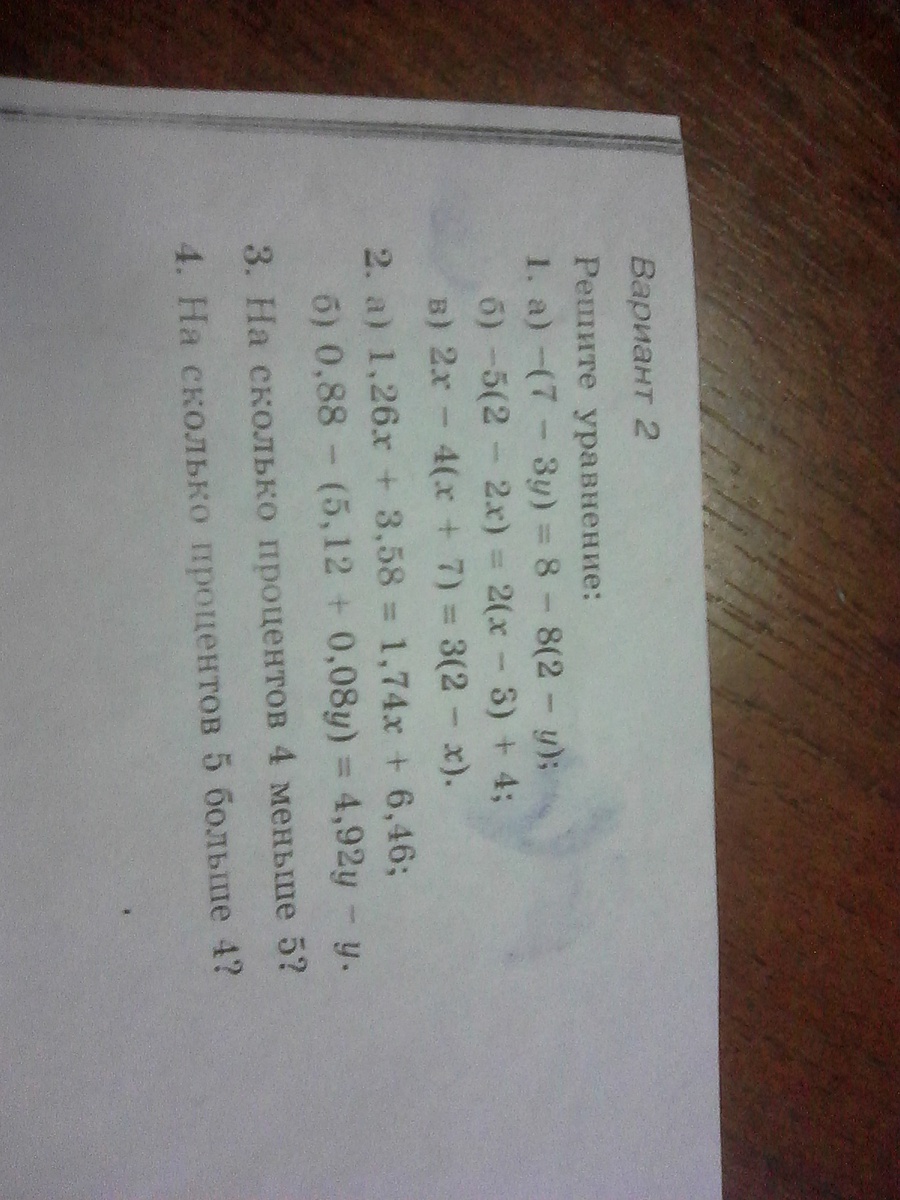 Вариант 2
Решите уравнение:
1. а) –(7 – 3y) = 8 – 8(2 – y);
б) –5(2 – 2x) = 2(x – 3) + 4;
в) 2x – 4(x + 7) = 3(2 – x).
2. а) 1,26x + 3,58 = 1,74x + 6,46;
б) 0,88 – (5,12 + 0,08y) = 4,92y – y.
3. На сколько процентов 4 меньше 5?
4. На сколько процентов 5 больше 4?